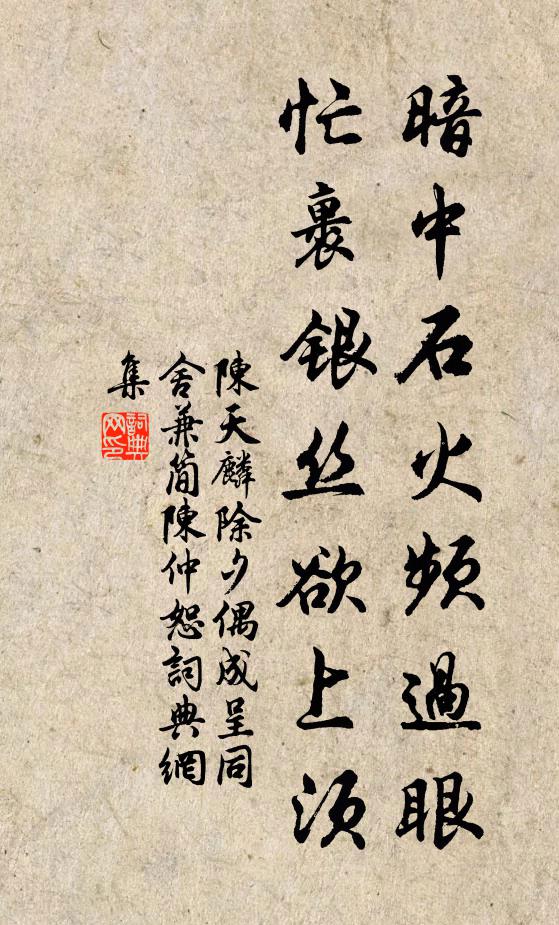 暗中石火频過眼
忙裏銀丝欲上须
陳天麟除夕偶成呈同
舍兼简陳仲恕詞典網
集
詞典
网印